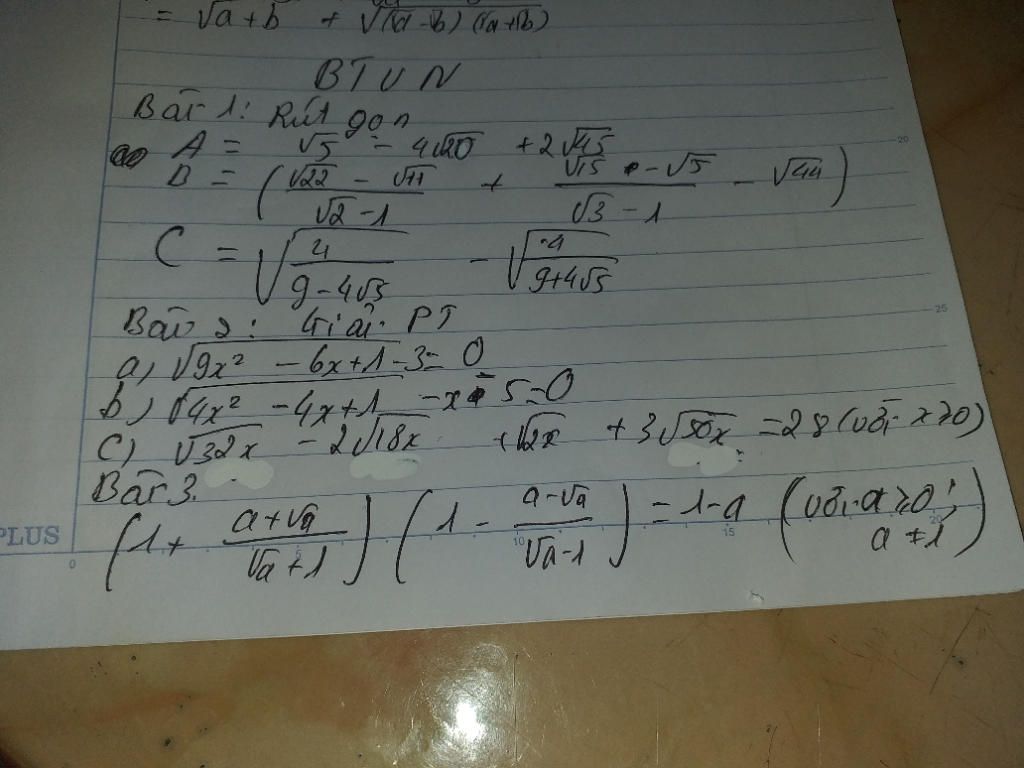 = √a+b + √(√a-√b)(√a+√b)
BTVN
Bài 1: Rút gọn
A = √5 - 4√20 + 2√45
B = ( (√22 - √11)/(√2 - 1) + (√15 - √5)/(√3 - 1) - √44 )
C = √(4/(9-4√5)) - √(4/(9+4√5))
Bài 2: Giải PT
a) √9x² - 6x+1 - 3 = 0
b) √4x² - 4x+1 - x 5 = 0
c) √32x - 2√18x + √2x + 3√50x = 28 (với x≥0)
Bài 3.
(1 + (a+√a)/(√a+1)) (1 - (a-√a)/(√a-1)) = 1-a (với a≥0;
a ≠ 1)
PLUS
0
5
10
15
20
20
25